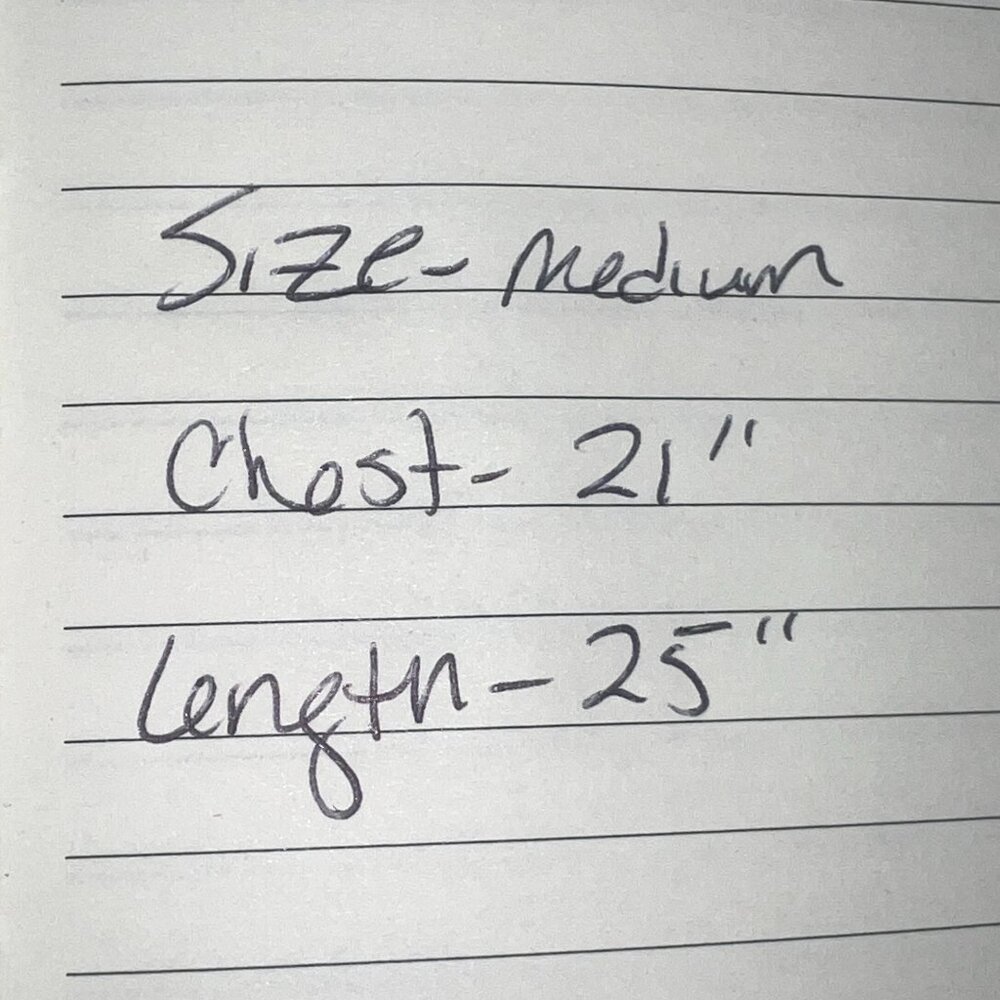 Size- Medium
Chest- 21"
Length- 25"